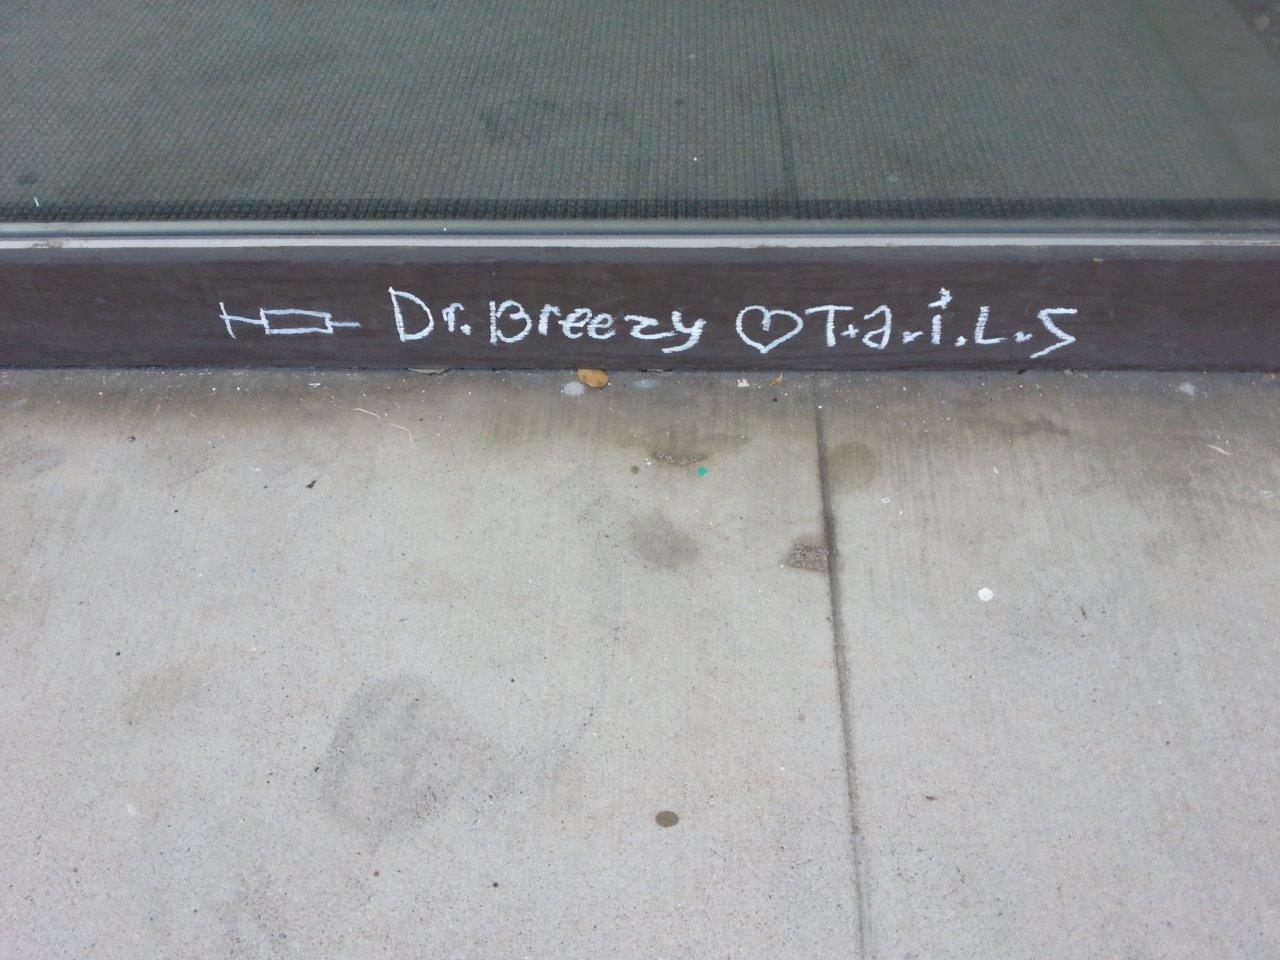 Dr. Breezy ♡ T.a.i.L.S